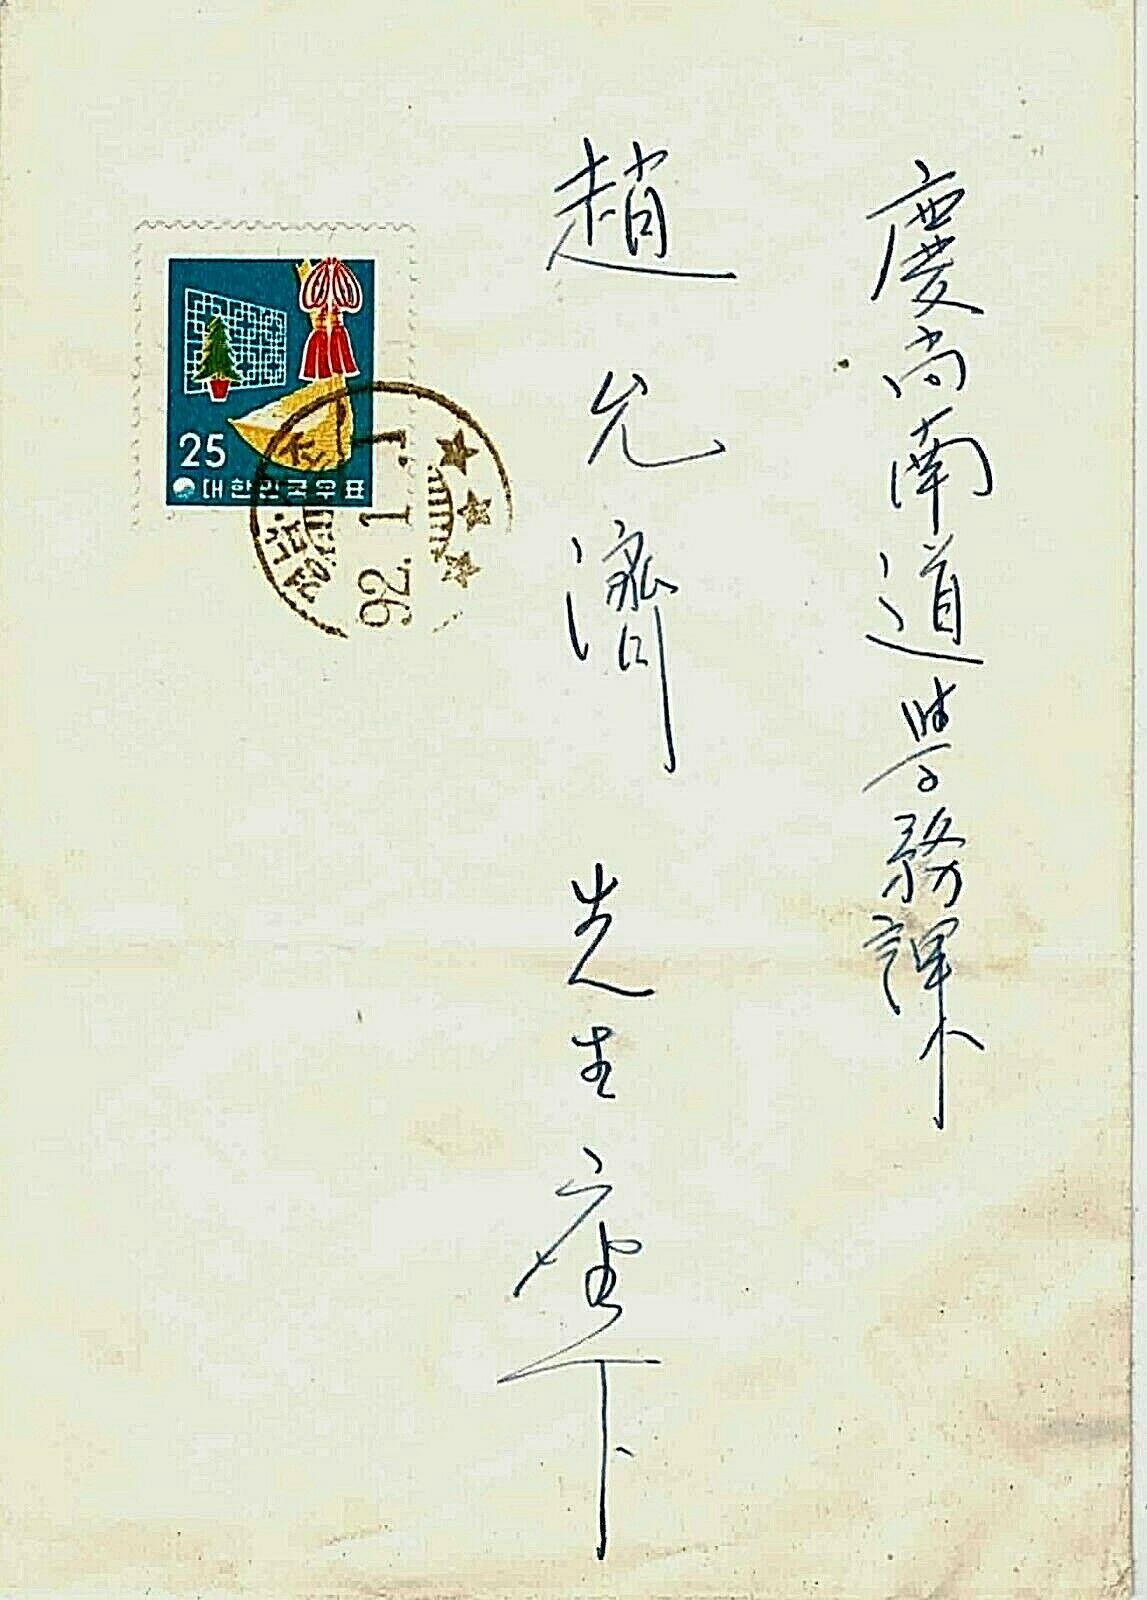 慶尚南道學務課
趙允濟
先生座下
25
대한민국우표
92.1.1